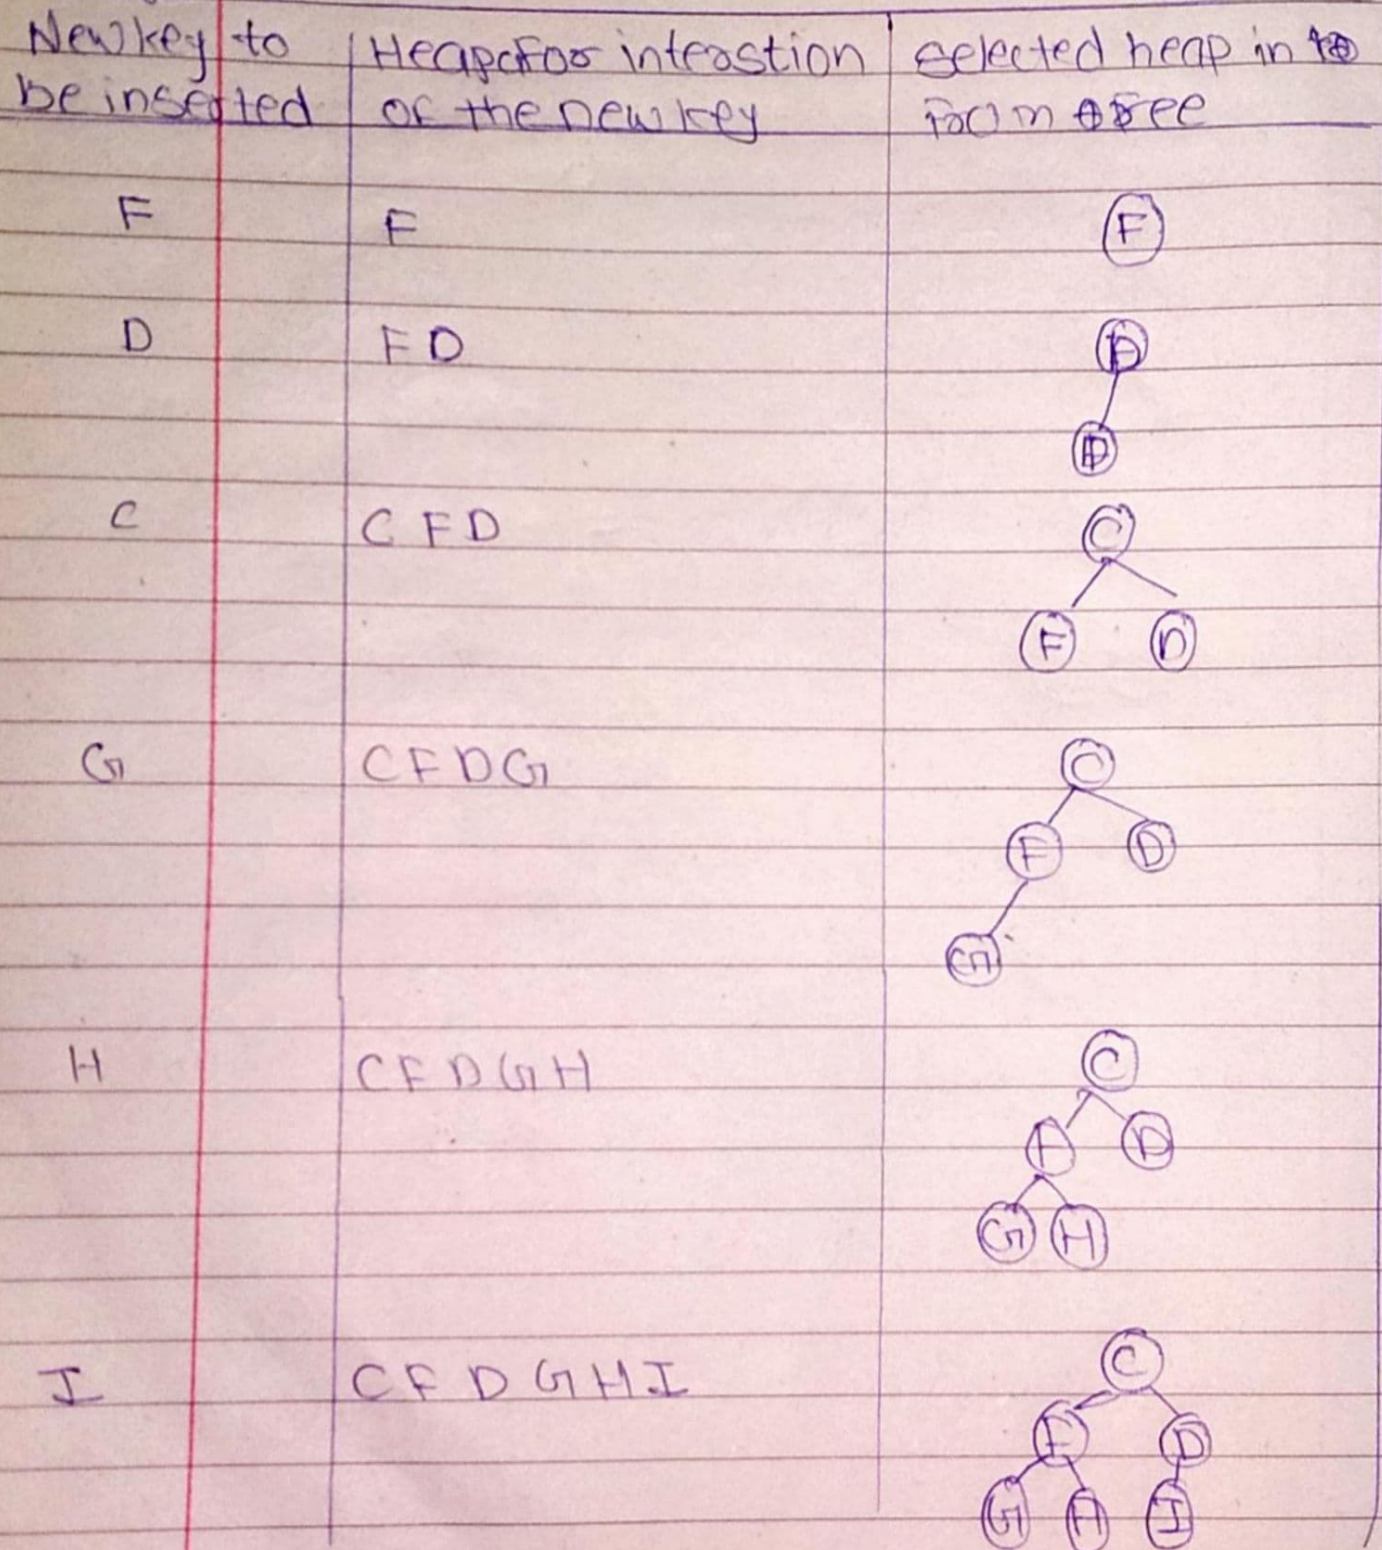 New key to
be inserted
Heap for interstion
of the new key
selected heap in
from tree
F
F
F
D
F D
C
C F D
C
F D
G
C F D G
C
F D
G
H
C F D G H
C
F D
G H
I
C F D G H I
C
F D
G H I